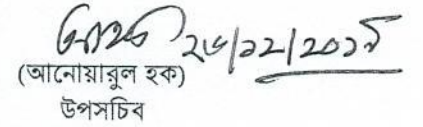 ২৬/১২/২০১৭
(আনোয়ারুল হক)
উপসচিব